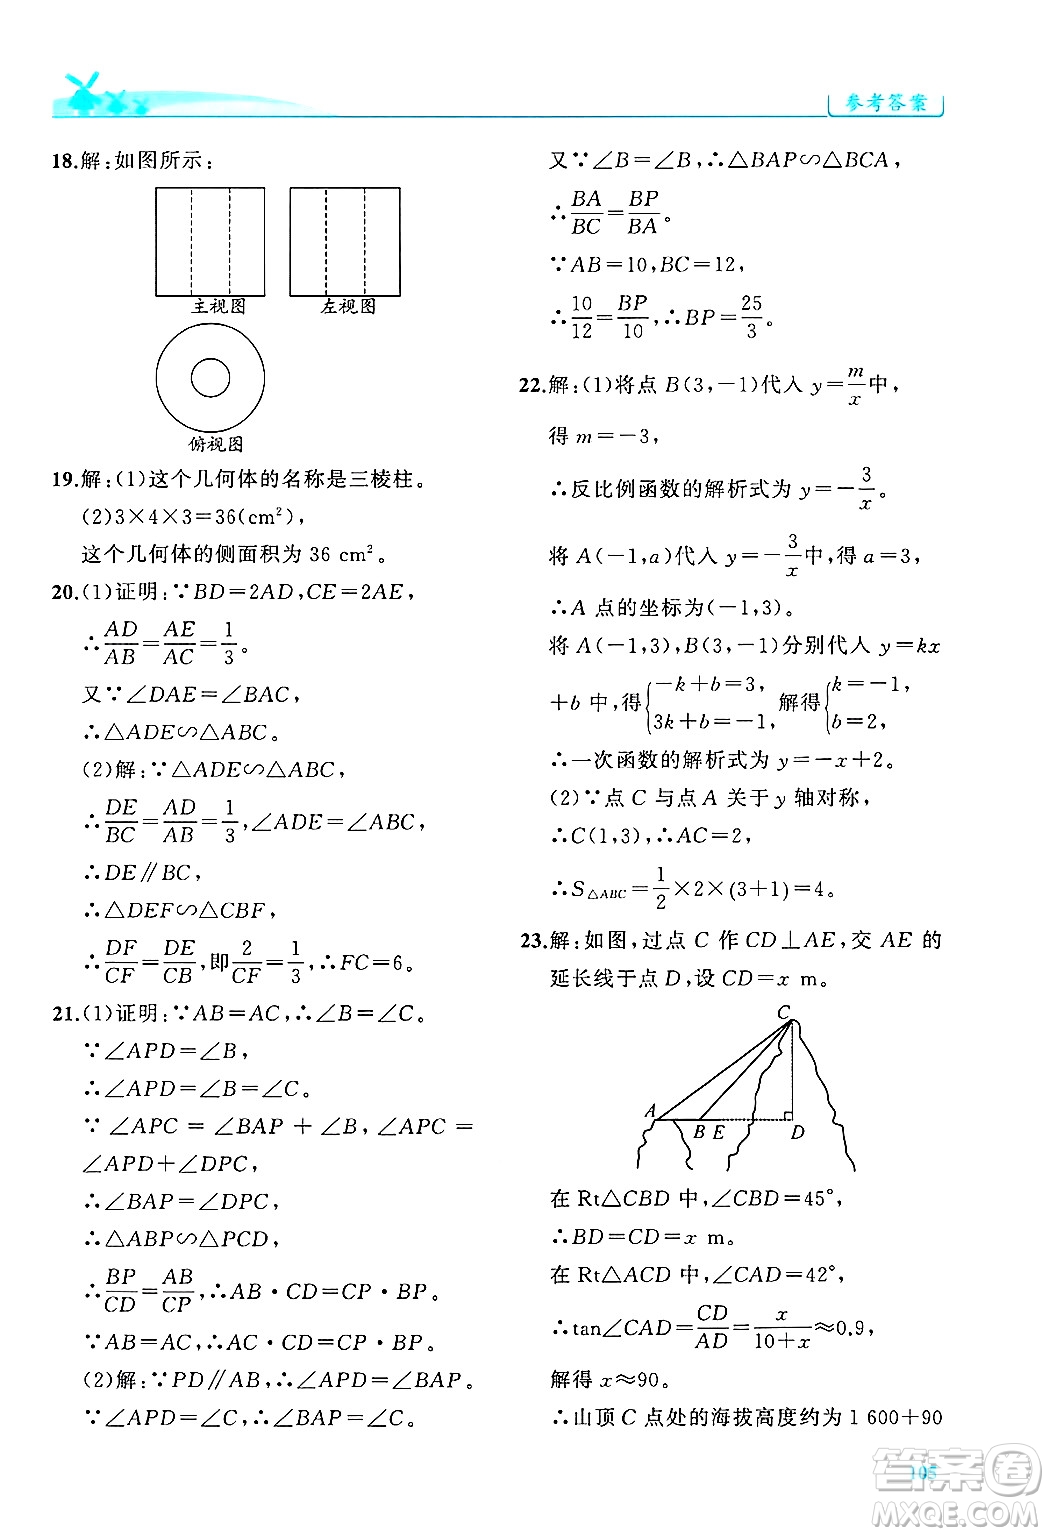 参考答案
18.解:如图所示:
主视图
左视图
俯视图
19.解:(1)这个几何体的名称是三棱柱。
(2)3×4×3=36(cm²),
这个几何体的侧面积为 36 cm²。
20.(1)证明:∵BD=2AD,CE=2AE,
∴AD/AB=AE/AC=1/3。
又∵∠DAE=∠BAC,
∴△ADE∽△ABC。
(2)解:∵△ADE∽△ABC,
∴DE/BC=AD/AB=1/3,∠ADE=∠ABC,
∴DE∥BC。
∴△DEF∽△CBF,
∴DF/CF=DE/CB,即2/CF=1/3,∴FC=6。
21.(1)证明:∵AB=AC,∴∠B=∠C。
∵∠APD=∠B,
∴∠APD=∠B=∠C。
∵∠APC=∠BAP+∠B,∠APC=
∠APD+∠DPC,
∴∠BAP=∠DPC,
∴△ABP∽△PCD,
∴BP/CD=AB/CP,∴AB·CD=CP·BP。
∵AB=AC,∴AC·CD=CP·BP。
(2)解:∵PD∥AB,∴∠APD=∠BAP。
∵∠APD=∠C,∴∠BAP=∠C。
又∵∠B=∠B,∴△BAP∽△BCA,
∴BA/BC=BP/BA。
∵AB=10,BC=12,
∴10/12=BP/10,∴BP=25/3。
22.解:(1)将点 B(3,-1)代入 y=m/x中,
得 m=-3,
∴反比例函数的解析式为 y=-3/x。
将 A(-1,a)代入 y=-3/x中,得 a=3,
∴A 点的坐标为(-1,3)。
将 A(-1,3),B(3,-1)分别代入 y=kx
+b 中,得{-k+b=3, 3k+b=-1, 解得{k=-1, b=2,
∴一次函数的解析式为 y=-x+2。
(2)∵点 C 与点 A 关于 y 轴对称,
∴C(1,3),∴AC=2,
∴S△ABC=1/2×2×(3+1)=4。
23.解:如图,过点 C 作 CD⊥AE,交 AE 的
延长线于点 D,设 CD=x m。
C
A
B E D
在 Rt△CBD 中,∠CBD=45°,
∴BD=CD=x m。
在 Rt△ACD 中,∠CAD=42°,
∴tan∠CAD=CD/AD=x/(10+x)≈0.9,
解得 x≈90。
∴山顶 C 点处的海拔高度约为 1 600+90
105
答案圈
MXQE.COM